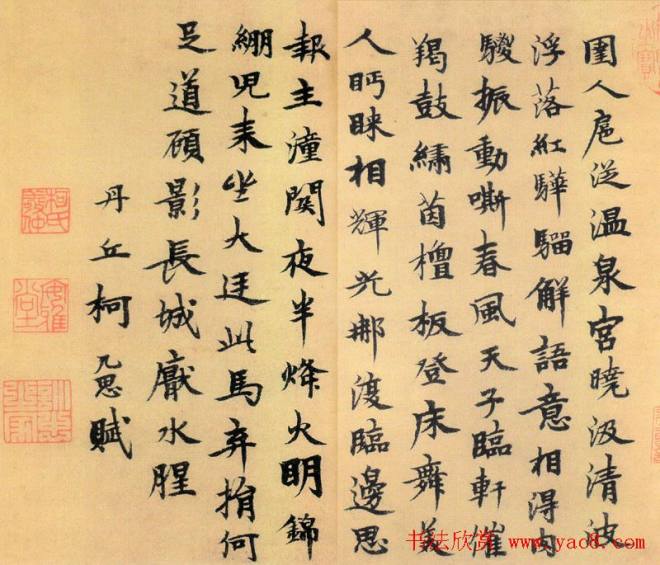 圉人扈從温泉宮曉汲清波
浮落紅驊騮解語意相得肉
騣振動嘶春風天子臨軒催
羯鼓繡茵檀板登床舞美
人眄睞相輝光那復臨邊思
報主潼関夜半烽火明錦
繃兒来坐大逵此馬弃捐何
足道顧影長城厭水腥
丹丘柯九思賦
书法欣赏 www.yac8.com